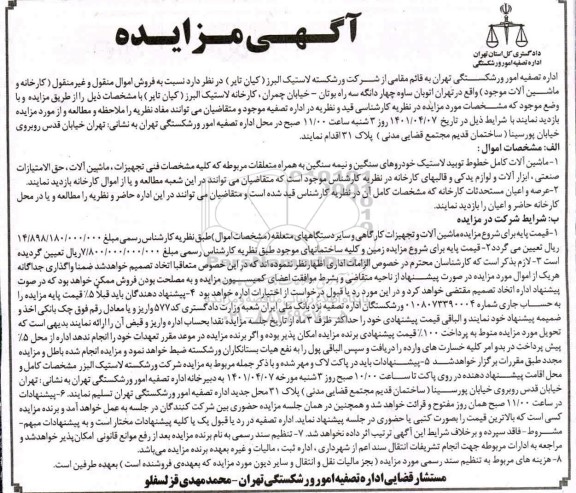 آگهی مزایده
دادگستری کل استان تهران
اداره تصفیه امور ورشکستگی
اداره تصفیه امور ورشکستگی تهران به قائم مقامی از شرکت ورشکسته لاستیک البرز ( کیان تایر ) در نظر دارد نسبت به فروش اموال منقول و غیر منقول ( کارخانه و
ماشین آلات موجود ) واقع در تهران اتوبان ساوه چهار دانگه سه راه بوتان - خیابان چمران ، کارخانه لاستیک البرز ( کیان تایر ) با مشخصات ذیل را از طریق مزایده و با
وضع موجود که مشخصات مورد مزایده در نظریه کارشناسی قید و نظریه در اداره تصفیه موجود و متقاضیان می توانند مفاد نظریه را ملاحظه و مطالعه و از مورد مزایده
بازدید نمایند با شرایط ذیل در تاریخ ۱۴۰۱/۰۴/۰۷ روز ۳ شنبه ساعت ۱۱/۰۰ صبح در محل اداره تصفیه امور ورشکستگی تهران به نشانی: تهران خیابان قدس روبروی
خیابان پورسینا ( ساختمان قدیم مجتمع قضایی مدنی ) پلاک ۳۱ اقدام نمایند.
الف : مشخصات اموال :
۱-ماشین آلات کامل خطوط تولید لاستیک خودروهای سنگین و نیمه سنگین به همراه متعلقات مربوطه که کلیه مشخصات فنی تجهیزات ، ماشین آلات ، حق الامتیازات
صنعتی ، ابزار آلات و لوازم یدکی و قالبهای کارخانه در نظریه کارشناس موجود است که متقاضیان می توانند در این شعبه مطالعه و یا از اموال کارخانه بازدید نمایند.
۲-عرصه و اعیان مستحدثات کارخانه که مشخصات کامل آن در نظریه کارشناس قید شده است و متقاضیان می توانند در این اداره حاضر و نظریه را مطالعه و یا در محل
کارخانه حاضر و اعیان را بازدید نمایند.
ب: شرایط شرکت در مزایده
۱- قیمت پایه برای شروع مزایده ماشین آلات و تجهیزات کارگاهی و سایر دستگاههای متعلقه (مشخصات اموال) طبق نظریه کارشناس رسمی مبلغ ۱۴/۸۹۸/۱۸۰/۰۰۰/۰۰۰
ریال تعیین می گردد ۲- قیمت پایه برای شروع مزایده زمین و کلیه ساختمانهای موجود طبق نظریه کارشناس رسمی مبلغ ۷/۸۰۰/۰۰۰/۰۰۰/۰۰۰ ریال تعیین گردیده
است ۳- لازم بذکر است که کارشناسان محترم در خصوص الزامات اداری اظهار نظر ننموده اند که در این خصوص متعاقبا اتخاذ تصمیم خواهد شد ضمنا واگذاری جداگانه
هریک از اموال مورد مزایده در صورت پیشنهاد از ناحیه متقاضی و بشرط موافقت اعضای کمیسیون مزایده و به مصلحت بودن فروش ممکن خواهد بود که در صورت
پیشنهاد اداره اتخاذ تصمیم مقتضی خواهد کرد و در این مورد رد یا قبول درخواست از اختیارات اداره خواهد بود ۴- پیشنهاد دهندگان باید قبلا ۵٪ قیمت پایه مزایده را
به حساب جاری شماره ۰۱۰۸۰۷۳۳۹۰۰۰۴ ورشکستگان اداره تصفیه نزد بانک ملی ایران شعبه وزارت دادگستری کد ۵۷۷ واریز و یا معادل رقم فوق چک بانکی اخذ و
ضمیمه پیشنهاد خود نمایند و الباقی قیمت پیشنهادی خود را حداکثر ظرف ۳ ماه از تاریخ جلسه مزایده نقدا بحساب اداره واریز و قبض آن را ارائه نمایند بدیهی است که
تحویل مورد مزایده منوط به پرداخت ۱۰۰٪ قیمت پیشنهادی برنده مزایده امکان پذیر بوده و اگر برنده مزایده در موعد مقرر تعهدات خود را انجام ندهد اداره از محل ۵٪
پیش پرداخت در بدو امر کلیه خسارت های وارده را دریافت و سپس الباقی پول را به نفع هیات بستانکاران ورشکسته ضبط خواهد نمود و مزایده انجام شده باطل و مزایده
مجدد طبق مقررات برگزار خواهد شد. ۵- پیشنهادات باید در پاکت لاک و مهر شده و با ذکر جمله مربوط به مزایده شرکت ورشکسته لاستیک البرز مشخصات کامل و
محل اقامت پیشنهاد دهنده در روی پاکت تا ساعت ۱۰/۰۰ صبح روز ۳ شنبه مورخه ۱۴۰۱/۰۴/۰۷ به دبیرخانه اداره تصفیه امور ورشکستگی تهران به نشانی : تهران
خیابان قدس روبروی خیابان پورسینا ( ساختمان قدیم مجتمع قضایی مدنی ) پلاک ۳۱ محل جدید اداره تصفیه امور ورشکستگی تهران تسلیم نمایند. ۶- پیشنهادات
در ساعت ۱۱/۰۰ صبح همان روز مفتوح و قرائت خواهد شد و همچنین در همان جلسه مزایده حضوری بین شرکت کنندگان در جلسه به عمل خواهد آمد و برنده مزایده
کسی است که بالاترین قیمت را بصورت کتبی یا حضوری در جلسه پیشنهاد نماید. اداره تصفیه در رد یا قبول یک یا کلیه پیشنهادات مختار است و به پیشنهادات مبهم-
مشروط - فاقد سپرده و برخلاف شرایط این آگهی ترتیب اثر داده نخواهد شد. ۷- تنظیم سند رسمی به نام برنده مزایده بعد از رفع موانع قانونی امکان پذیر خواهد شد و
مراجعه به ادارات مربوطه جهت انجام تشریفات انتقال سند اعم از شهرداری ، اداره ثبت ، مالیات و غیره بعهده برنده مزایده می باشد.
۸- هزینه های مربوط به تنظیم سند رسمی مورد مزایده ( بجز مالیات نقل و انتقال و سایر دیون مورد مزایده که بعهده ی فروشنده است ) بعهده طرفین است.
مستشار قضایی اداره تصفیه امور ورشکستگی تهران - محمد مهدی قزلسفلو